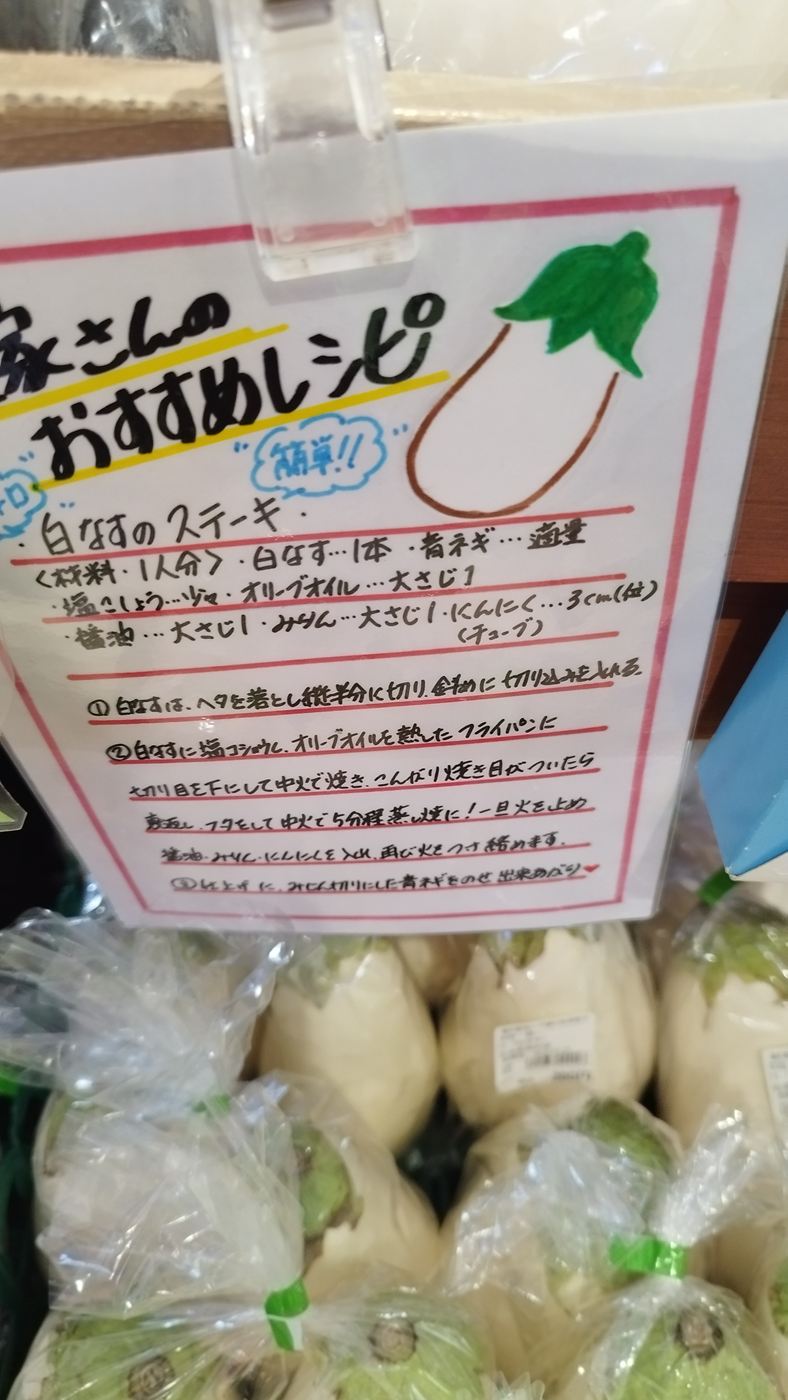 家さんの
おすすめレシピ
"簡単!!"
ロ"
・白なすのステーキ・
<材料・1人分>・白なす…1本 ・青ネギ…適量
・塩こしょう…少々・オリーブオイル…大さじ1
・醤油…大さじ1・みりん…大さじ1・にんにく…3cm(位)
(チューブ)
①白なすは、ヘタを落とし縦半分に切り、斜めに切り込みを入れる。
②白なすに塩コショウし、オリーブオイルを熱したフライパンに
切り目を下にして中火で焼き、こんがり焼き目がついたら
裏返し、フタをして中火で5分程蒸し焼に!一旦火を止め
醤油・みりん・にんにくを入れ、再び火をつけ絡めます。
③仕上げに、みじん切りにした青ネギをのせ出来あがり♥